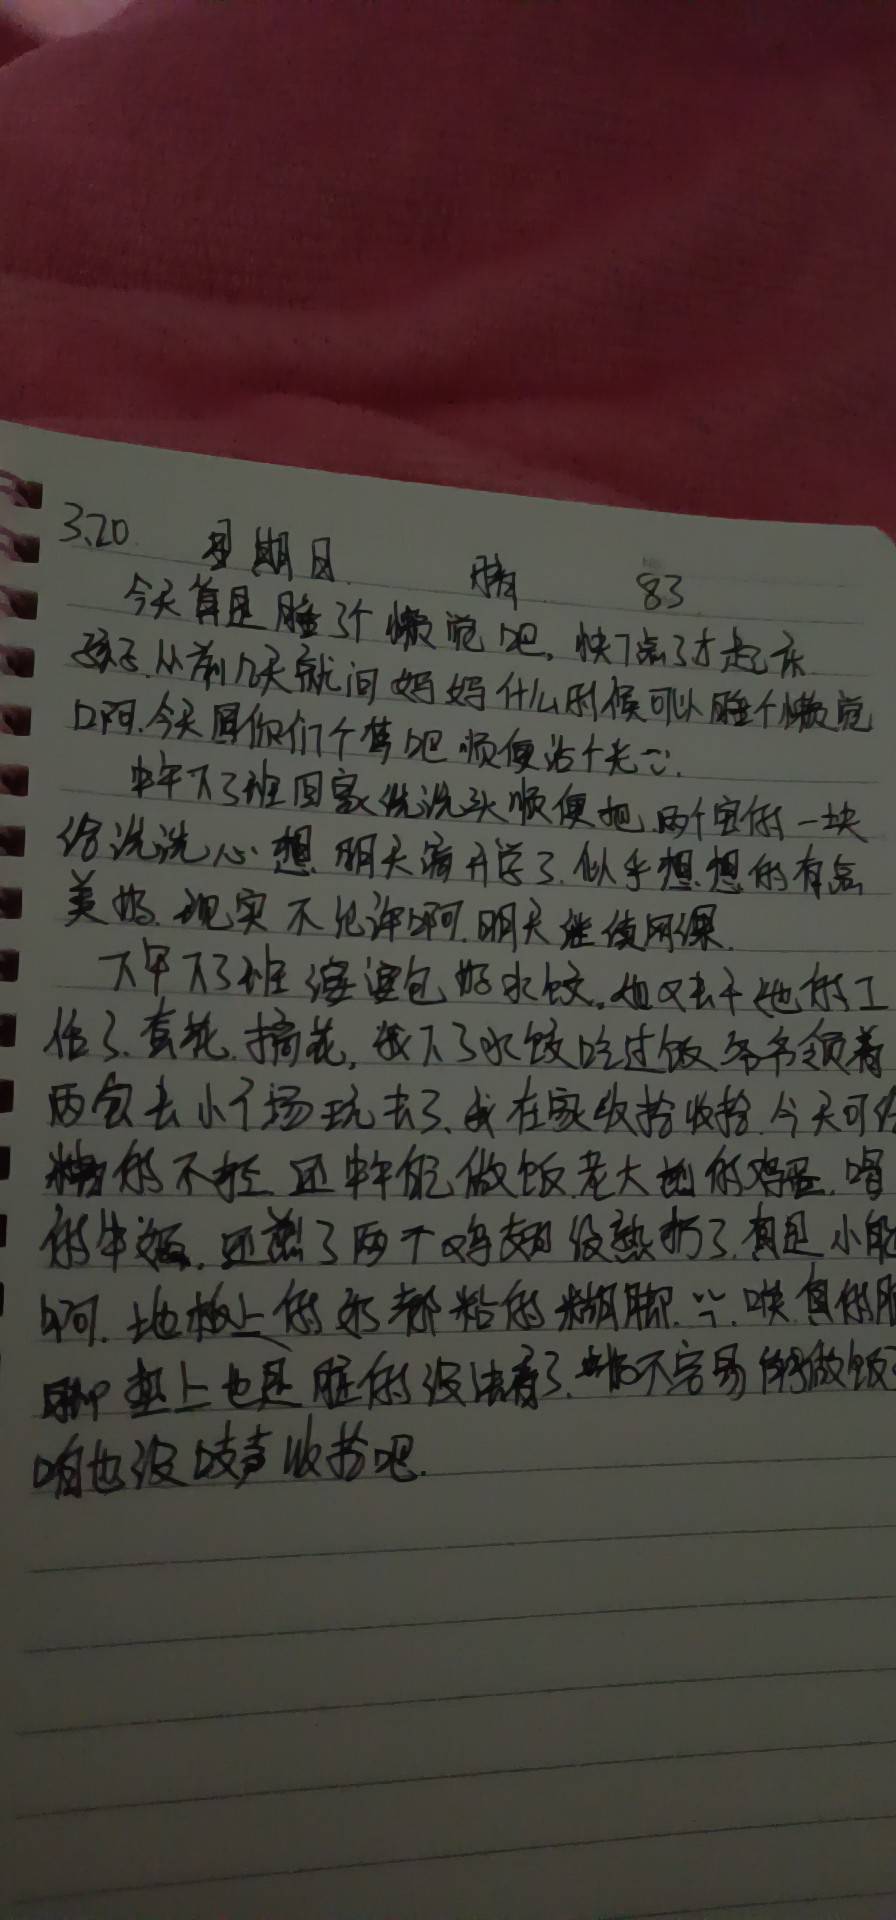 3.20 星期日 晴 83
今天算是睡了个懒觉吧,快7点了才起床
孩子从前几天就问妈妈什么时候可以睡个懒觉
啊.今天圆你们个梦吧顺便沾个光
中午下了班回家洗洗头顺便把两个宝的一块
给洗洗心想明天需开学了.似乎想想的有点
美好.现实不允许啊.明天继续网课.
下午下了班滨滨包好水饺.他又去干他的工
作了.套花.摘花,我下了水饺吃过饭爷爷领着
两宝去小广场玩去了、我在家收拾收拾.今天可给
的不轻还中午能做饭.老大 的鸡蛋.喝
的牛奶.还煎了两个鸡翅没熟扔了.真是小
啊.地板上的奶都粘的糊脚.唉真的服
脚垫上也是脏的没法看了.好不容易 做饭
咱也没吱声收拾吧.